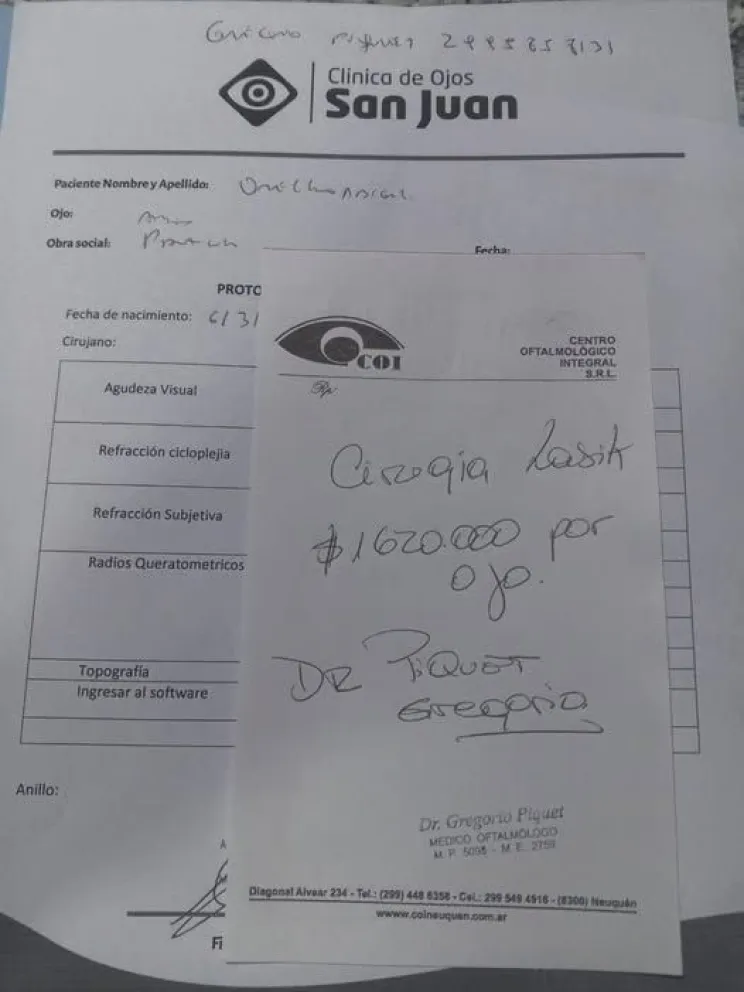 Clínica de Ojos
San Juan
Paciente Nombre y Apellido:
Ojo:
Obra social:
Fecha:
PROTO
Fecha de nacimiento: 6/31
Cirujano:
Agudeza Visual
Refracción cicloplejia
Refracción Subjetiva
Radios Queratometricos
Topografía
Ingresar al software
Anillo:
Fi
COI
CENTRO
OFTALMOLÓGICO
INTEGRAL
S.R.L.
Rp/
Cirugia Lasik
$1620.000 por
ojo.
DR Piquet
Gregorio
Dr. Gregorio Piquet
MEDICO OFTALMÓLOGO
M. P. 5098 - M. E. 2759
Diagonal Alvear 234 - Tel.: (299) 448 6356 - Cel.: 299 549 4916 - (8300) Neuquén
www.coineuquen.com.ar